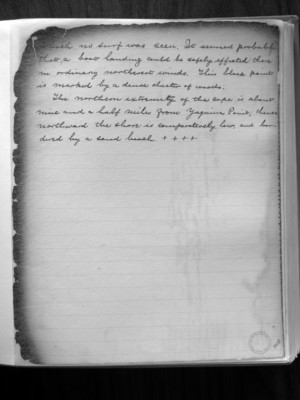 which no surf was seen. It seemed probable
that a boat landing could be safely effected there
in ordinary northwest winds. This point
is marked by a dense cluster of woods.
The northern extremity of the cape is about
nine and a half miles from Point, thence
northward the shore is comparatively low, and bor-
dered by a sand beach + + + +